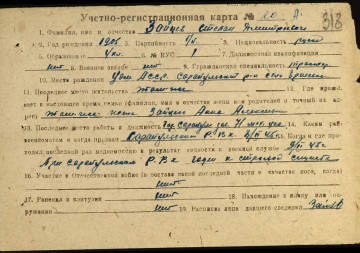 Учетно-регистрационная карта № 80
318
1. Фамилия, имя и отчество Зайцев Степан Дмитриевич
2. Год рождения 1905 2. Партийность б/п 3. Национальность
5. Образование 4 кл. 6. № ВУС 1 7. Должностная квалификация
нет 8. Военное звание нет 9. Гражданская специальность
10. Место рождения Удм. АССР. Сарапульский р-н
11. Последнее место жительства 12. Где прожи-
вает в настоящее время семья (фамилия, имя и отчество жены или родителей и точный ад-
рес) жена Зайцева Анна
13. Последнее место работы и должность 14. Каким рай-
военкоматом и когда призван Сарапульский Р.В.К. 15. Когда и где про-
ходил последний раз медкомиссию и результат годности к военной службе
при Сарапульском Р.В.К. годен к строевой службе
16. Участие в Отечественной войне (в составе какой последней части и качестве кого, когда)
нет
17. Ранения и контузии нет 18. Нахождение в плену или ок-
ружении нет 19. Расписка лица давшего сведения